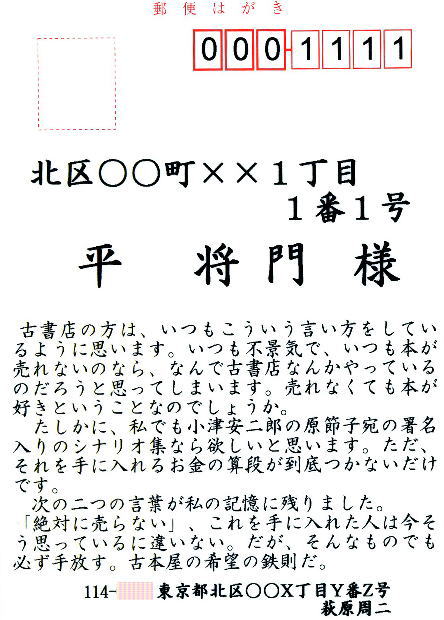 郵便はがき
000-1111
北区〇〇町××1丁目
1番1号
平 将門 様
古書店の方は、いつもこういう言い方をしてい
るように思います。いつも不景気で、いつも本が
売れないのなら、なんで古書店なんかやっている
のだろうと思ってしまいます。売れなくても本が
好きということなのでしょうか。
たしかに、私でも小津安二郎の原節子宛の署名
入りのシナリオ集なら欲しいと思います。ただ、
それを手に入れるお金の算段が到底つかないだけ
です。
次の二つの言葉が私の記憶に残りました。
「絶対に売らない」、これを手に入れた人は今そ
う思っているに違いない。だが、そんなものでも
必ず手放す。古本屋の希望の鉄則だ。
114- 東京都北区〇〇X丁目Y番Z号
萩原周二